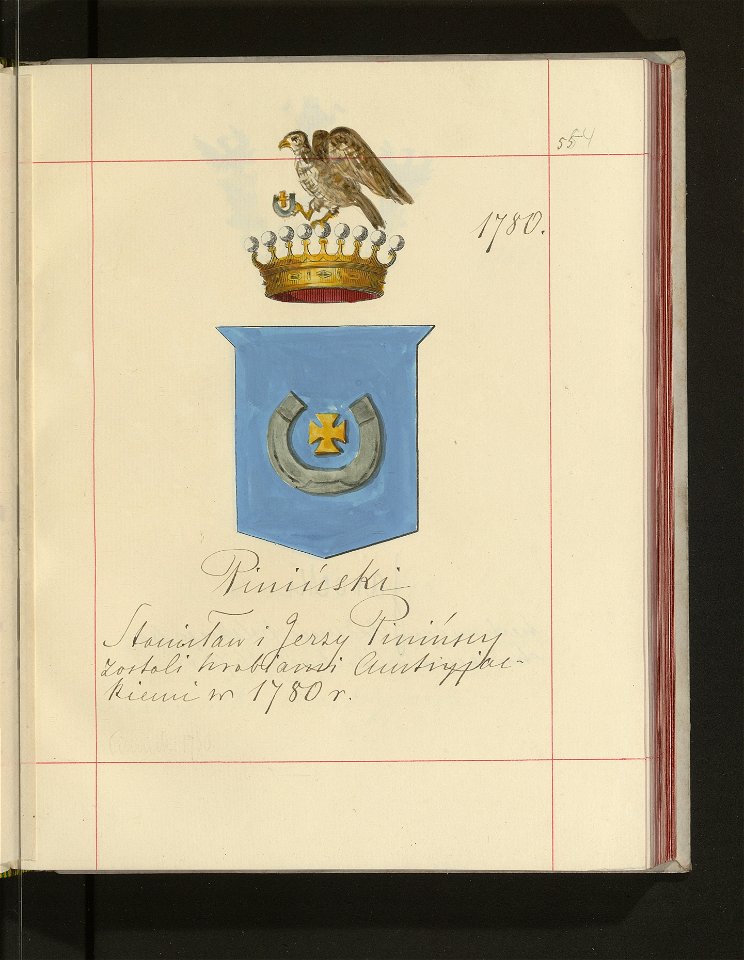 554
1780.
Piniński
Stanisław i Jerzy Pinińscy
zostali hrabiami Austryjac-
kiemi w 1780 r.